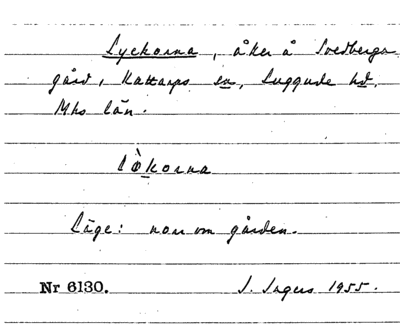 Lyckorna, åker å Svedberga
gård, Kattarps sn, Luggude hd.
Mhs län.
lø̀korna
Läge: norr om gården.
Nr 6130. I. Ingers 1955.